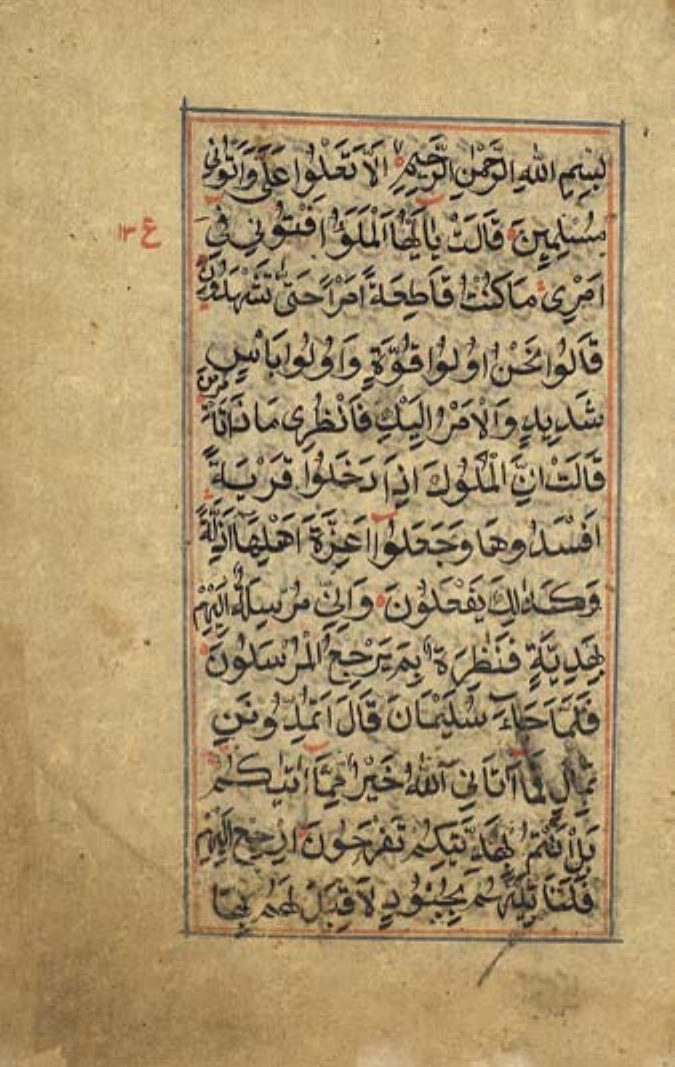 بِسْمِ اللهِ الرَّحْمٰنِ الرَّحِيْمِ اَلَّا تَعْلُوا عَلَيَّ وَاْتُوْنِيْ
مُسْلِمِيْنَ قَالَتْ يَا اَيُّهَا الْمَلَؤُا اَفْتُوْنِيْ فِيْ
ع ١٣
اَمْرِيْ مَا كُنْتُ قَاطِعَةً اَمْرًا حَتّٰى تَشْهَدُوْنِ
قَالُوْا نَحْنُ اُولُوْا قُوَّةٍ وَاُولُوْا بَاْسٍ
شَدِيْدٍ وَالْاَمْرُ اِلَيْكِ فَانْظُرِيْ مَاذَا تَاْمُرِيْنَ
قَالَتْ اِنَّ الْمُلُوْكَ اِذَا دَخَلُوْا قَرْيَةً
اَفْسَدُوْهَا وَجَعَلُوْا اَعِزَّةَ اَهْلِهَا اَذِلَّةً
وَكَذٰلِكَ يَفْعَلُوْنَ وَاِنِّيْ مُرْسِلَةٌ اِلَيْهِمْ
بِهَدِيَّةٍ فَنٰظِرَةٌ بِمَ يَرْجِعُ الْمُرْسَلُوْنَ
فَلَمَّا جَاءَ سُلَيْمَانَ قَالَ اَتُمِدُّوْنَنِ
بِمَالٍ فَمَا آتَانِيَ اللهُ خَيْرٌ مِمَّا اٰتٰيكُمْ
بَلْ اَنْتُمْ بِهَدِيَّتِكُمْ تَفْرَحُوْنَ اِرْجِعْ اِلَيْهِمْ
فَلَنَاْتِيَنَّهُمْ بِجُنُوْدٍ لَا قِبَلَ لَهُمْ بِهَا